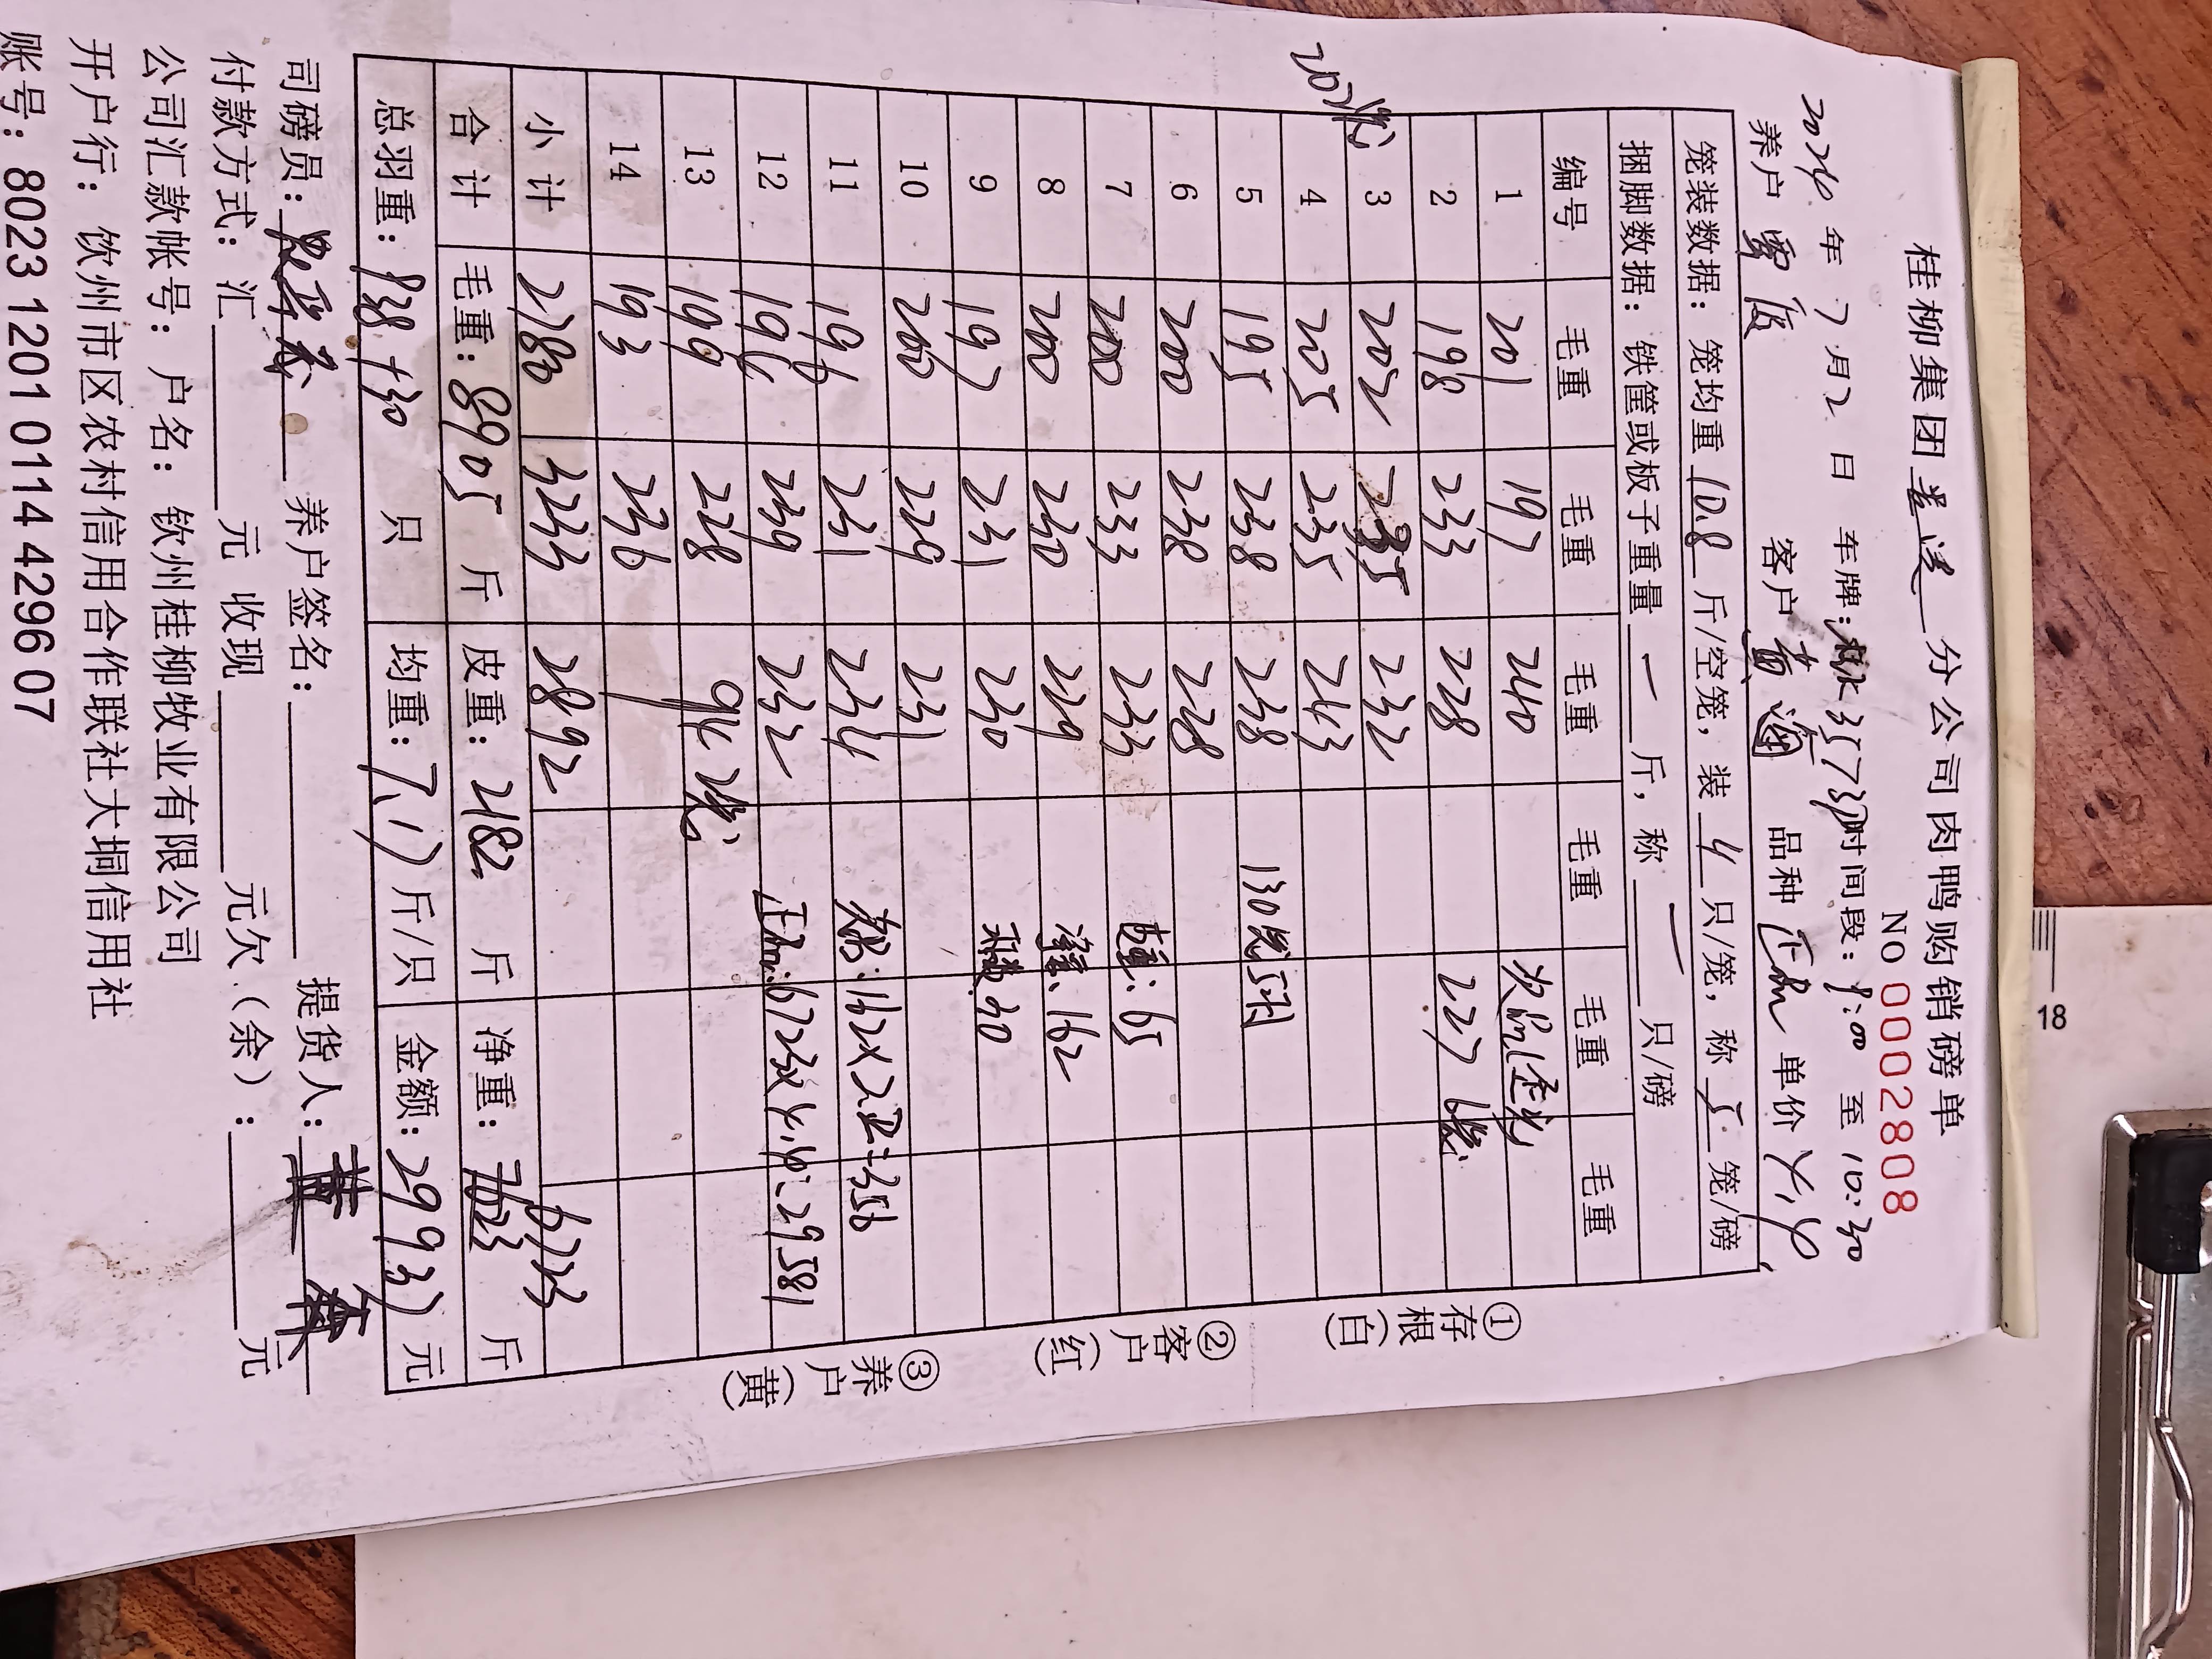 桂柳集团 分公司肉鸭购销磅单
NO 0002808
2026 年 7 月 2 日 车牌: 3573 时间段: 9:00 至 10:30
养户 客户: 黄海 品种 正品 单价 4.4
笼装数据: 笼均重 10.8 斤/空笼, 装 4 只/笼, 称 5 笼/磅
捆脚数据: 铁筐或板子重量 一 斤, 称 一 只/磅
编号 毛重 毛重 毛重 毛重 毛重 毛重
1 201 197 240 次品
2 198 233 228 227 6笼
3 202 235 232
202笼
4 205 235 243
5 195 238 238 130只
6 200 238 228
7 200 233 233 皮重: 65
8 200 230 229 净重: 162
9 197 231 230 30
10 200 229 231
11 196 231 234 次品: 162×2.2=356
12 196 239 232 正品: 6723×4.4=29581
13 199 228 94 2笼
14 193 236
小计 2780 3233 2892 6723
合计 毛重: 8905 斤 皮重: 2182 斤 净重: 斤
总羽重: 938+30 只 均重: 7.17 斤/只 金额: 29937 元
司磅员: 养户签名: 提货人:
付款方式: 汇 元 收现 元欠(余): 元
公司汇款帐号: 户名: 钦州桂柳牧业有限公司
开户行: 钦州市区农村信用合作联社大垌信用社
账号: 8023 1201 0114 4296 07
①存根(白)
②客户(红)
③养户(黄)
18